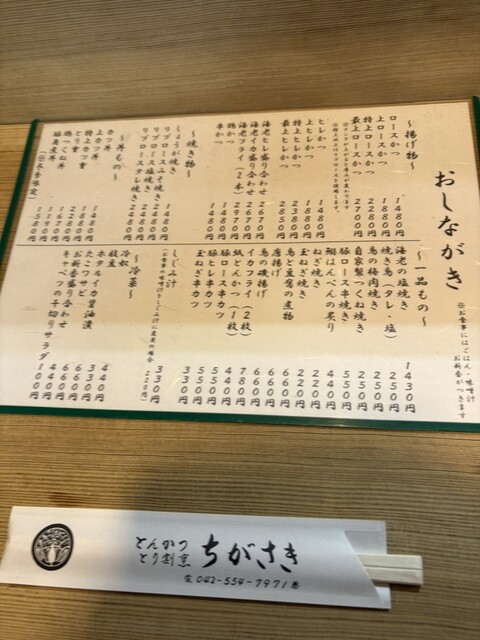 おしながき
※お食事にはごはん・味噌汁
お新香がつきます
～揚げ物～
ロースかつ 1480円
上ロースかつ 1880円
特上ロースかつ 2280円
最上ロースかつ 2700円
ヒレかつ 1480円
上ヒレかつ 1880円
特上ヒレかつ 2380円
最上ヒレかつ 2850円
海老ヒレ盛り合わせ 2670円
海老イカ盛り合わせ 2670円
海老フライ(2本) 2970円
鶏かつ 1480円
串かつ 1480円
～焼き物～
しょうが焼き 1480円
リブロースみそ焼き 2480円
リブロース塩焼き 2480円
リブロースタレ焼き 2480円
～丼もの～
カツ丼 1480円
上カツ丼 1880円
特上カツ重
とり重
鶏つくね丼
豚角煮丼
～一品もの～
海老の塩焼き 1430円
焼き鳥(タレ・塩) 250円
鳥の梅肉焼き 250円
自家製つくね焼き 250円
豚ロース串焼き 550円
翔はんぺんの炙り 440円
ねぎ焼き 220円
玉ねぎ焼き 220円
鳥と豆腐の煮物 660円
唐揚げ 660円
鳥の磯揚げ 660円
イカフライ(2枚) 660円
紙とんかつ(1枚) 780円
豚ロース串カツ 440円
豚ヒレ串カツ 550円
玉ねぎ串カツ 330円
しじみ汁 330円
(お食事の味噌汁をしじみ汁に変更の場合 220円)
～冷菜～
冷奴
枝豆 440円
ホタルイカの醤油漬
たこわさび
お新香盛り合わせ
キャベツの千切りサラダ 100円
とんかつ
とり割烹
ちがさき
☎042-554-7971番